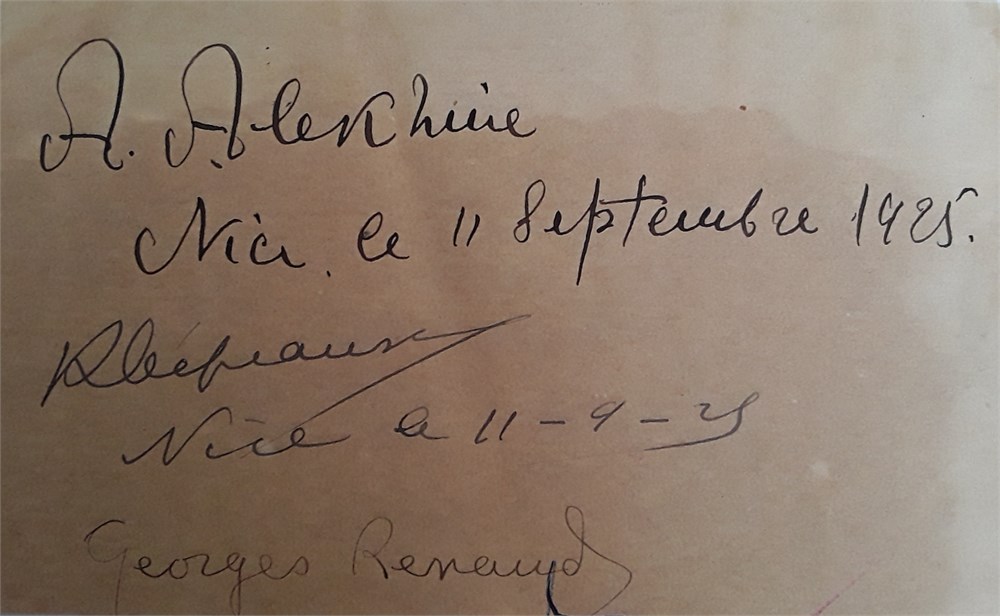 A. Alekhine
Nice. le 11 Septembre 1925.
R Crépeaux
Nice le 11-9-25
Georges Renaud